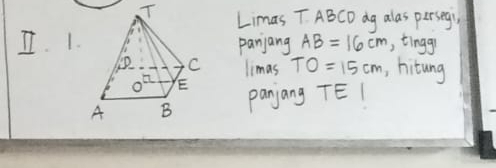 II. 1.
T
D
C
O
E
A
B
Limas T. ABCD dg alas persegi,
panjang AB = 16 cm, tinggi
limas TO = 15 cm, hitung
panjang TE !